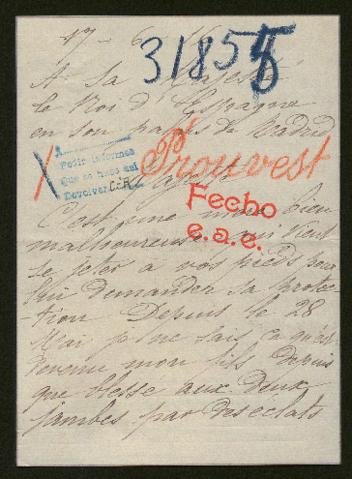 17 - 6 - 16
31855
A Sa Majesté
le Roi d'Espagne
en son palais de Madrid
Pedir informes
que se hace así
Devolver
Prouvest
Fecho
e.a.e.
C'est une mère bien
malheureuse qui vient
se jeter à vos pieds pour
lui demander sa protec-
tion Depuis le 28
Mai je ne sais ce qu'est
devenu mon fils depuis
que blessé aux deux
jambes par des éclats